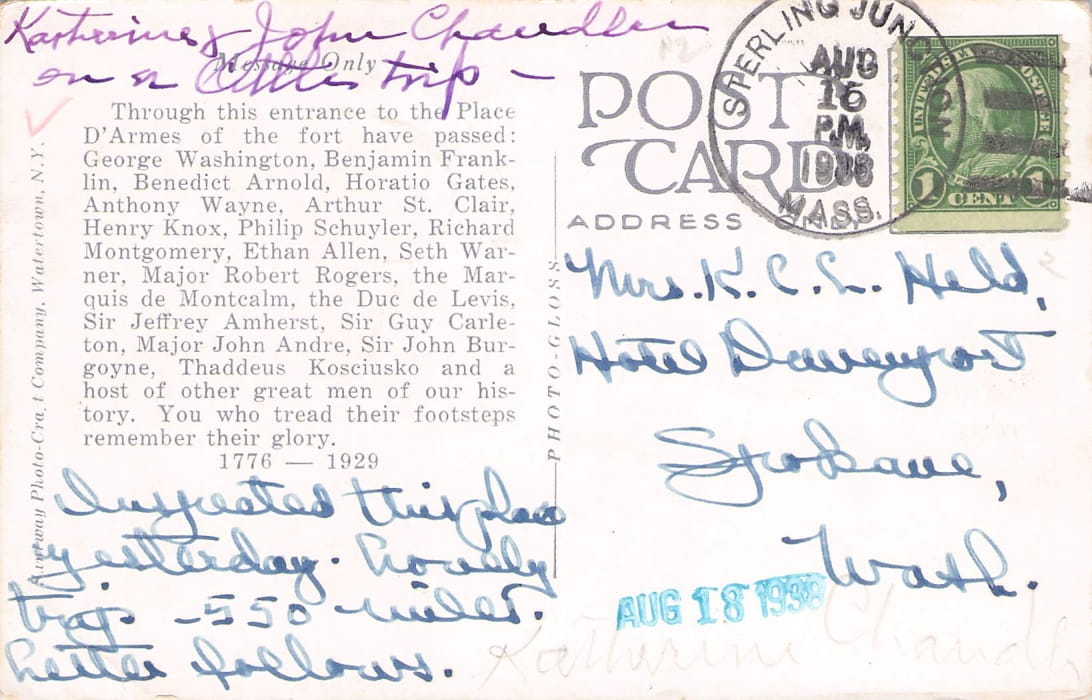 Katherine & John Chandler
on a little trip –
Message Only
Through this entrance to the Place
D'Armes of the fort have passed:
George Washington, Benjamin Frank-
lin, Benedict Arnold, Horatio Gates,
Anthony Wayne, Arthur St. Clair,
Henry Knox, Philip Schuyler, Richard
Montgomery, Ethan Allen, Seth War-
ner, Major Robert Rogers, the Mar-
quis de Montcalm, the Duc de Levis,
Sir Jeffrey Amherst, Sir Guy Carle-
ton, Major John Andre, Sir John Bur-
goyne, Thaddeus Kosciusko and a
host of other great men of our his-
tory. You who tread their footsteps
remember their glory.
1776 — 1929
Inspected this place
yesterday. Lovely
trip – 550 miles.
Letter follows.
Photo-Craft Company, Watertown, N.Y.
PHOTO-GLOSS
POST
CARD
ADDRESS
STERLING JUNCTION
AUG
16
P.M.
MASS.
UNITED STATES POSTAGE
1 CENT 1
Mrs. K. C. L. Held,
Hotel Davenport
Spokane,
Wash.
AUG 18 1938
Katherine Chandler